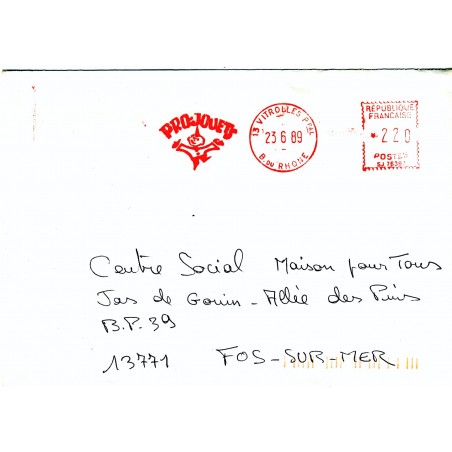 PRO-JOUETS
13 VITROLLES PPAL
23 6 89
B. DU RHONE
RÉPUBLIQUE
FRANCAISE
* 220
POSTES
Centre Social Maison pour Tous
Jas de Gouin - Allée des Pins
B.P. 39
13771 FOS-SUR-MER